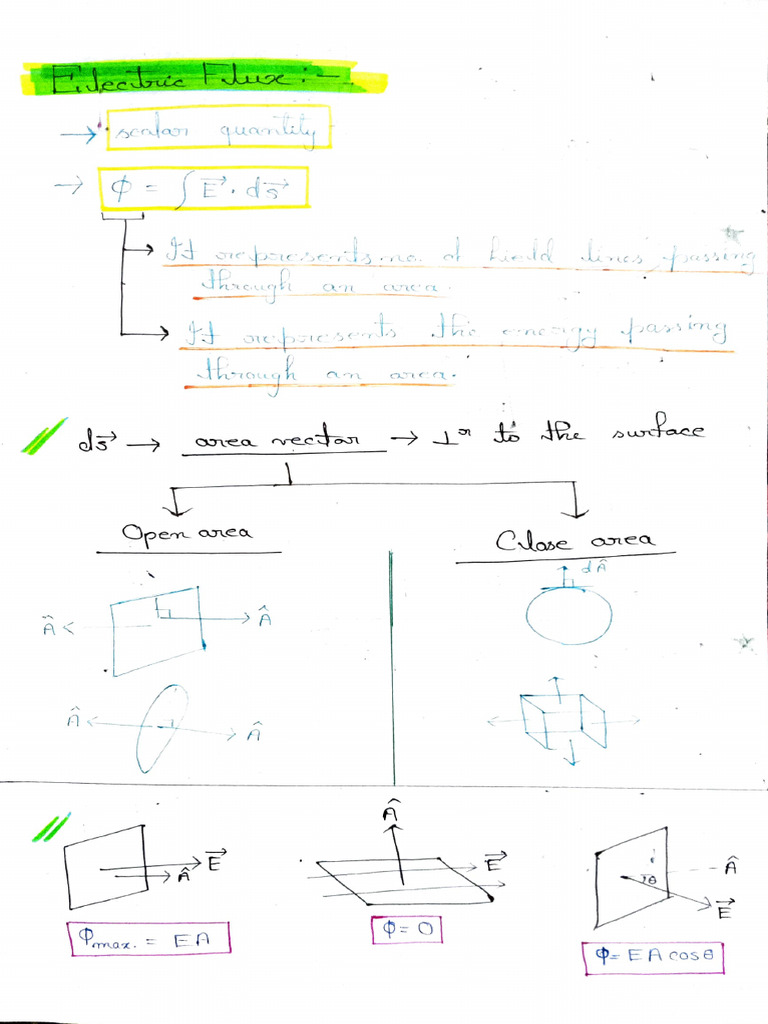 Electric Flux :-
→ scalar quantity
→ ϕ = ∫ E⃗ . ds⃗
→ It represents no. of field lines passing
through an area.
→ It represents the energy passing
through an area.
ds⃗ → area vector → ⊥ʳ to the surface
Open area
Close area
dÂ
Â Â
Â Â
Â
E⃗
Â
ϕmax. = EA
E⃗
ϕ = 0
Â
θ
E⃗
ϕ = EA cosθ